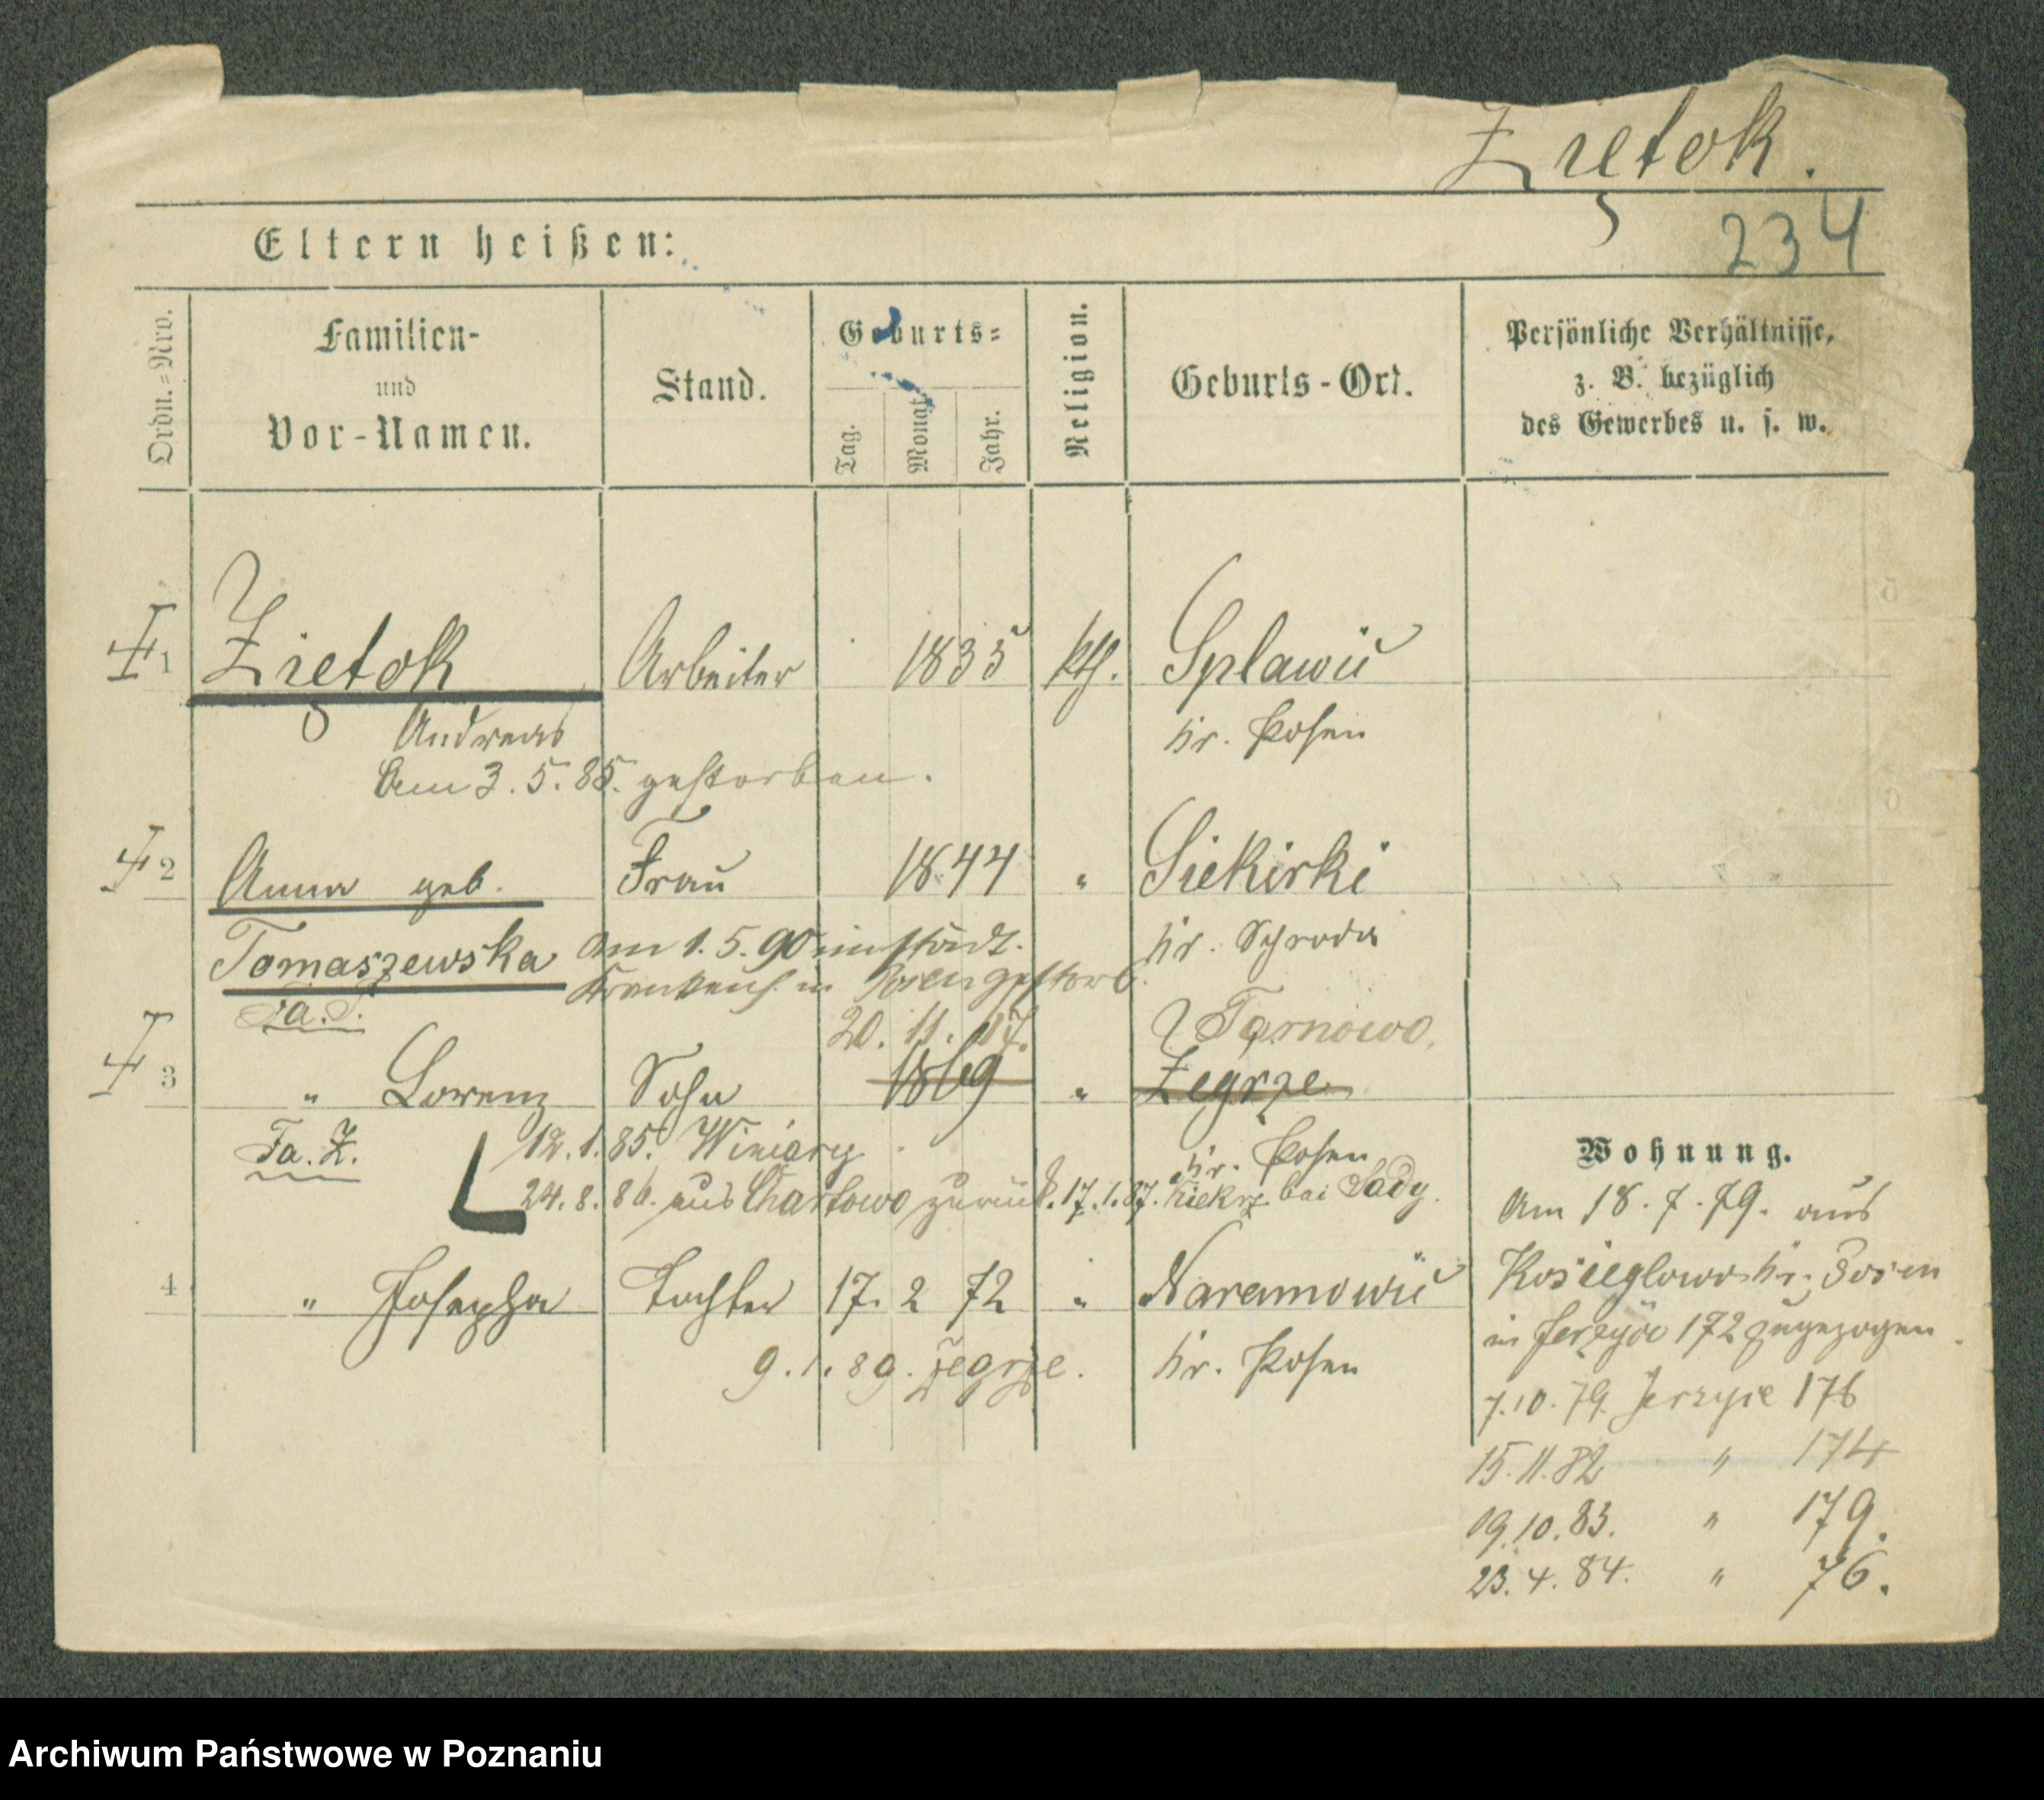 Zietok.
234
Eltern heißen:
Ordn.=Nro.
Familien-
und
Vor-Namen.
Stand.
Geburts=
Tag.
Monat.
Jahr.
Religion.
Geburts-Ort.
Persönliche Verhältnisse,
z. B. bezüglich
des Gewerbes u. s. w.
1 Zietok Arbeiter 1835 kth. Splawie
Andreas Kr. Posen
Am 3. 5. 85. gestorben.
2 Anna geb. Frau 1844 " Siekirki
Tomaszewska am 1. 5. 90 im städt. Kr. Schroda
Krankenh. in Posen gestorb.
Fa. T. 20. 11. Tarnowo.
3 " Lorenz Sohn 1869 " Zegrze
Kr. Posen
Fa. Z. 12. 1. 85. Winiary
24. 8. 86. aus Chartowo zurück. 17. 1. 87. Kiekrz bei Sady.
4 " Josepha Tochter 17. 2 72 " Naramowie
9. 1. 89. Zegrze. Kr. Posen
Wohnung.
Am 18. 7. 79. aus
Kosieglowo Kr. Posen
in Jerzyce 172 zugezogen.
7. 10. 79. Jerzyce 176
15. 11. 82 " 174
19. 10. 83. " 179.
23. 4. 84. " 76.
Archiwum Państwowe w Poznaniu